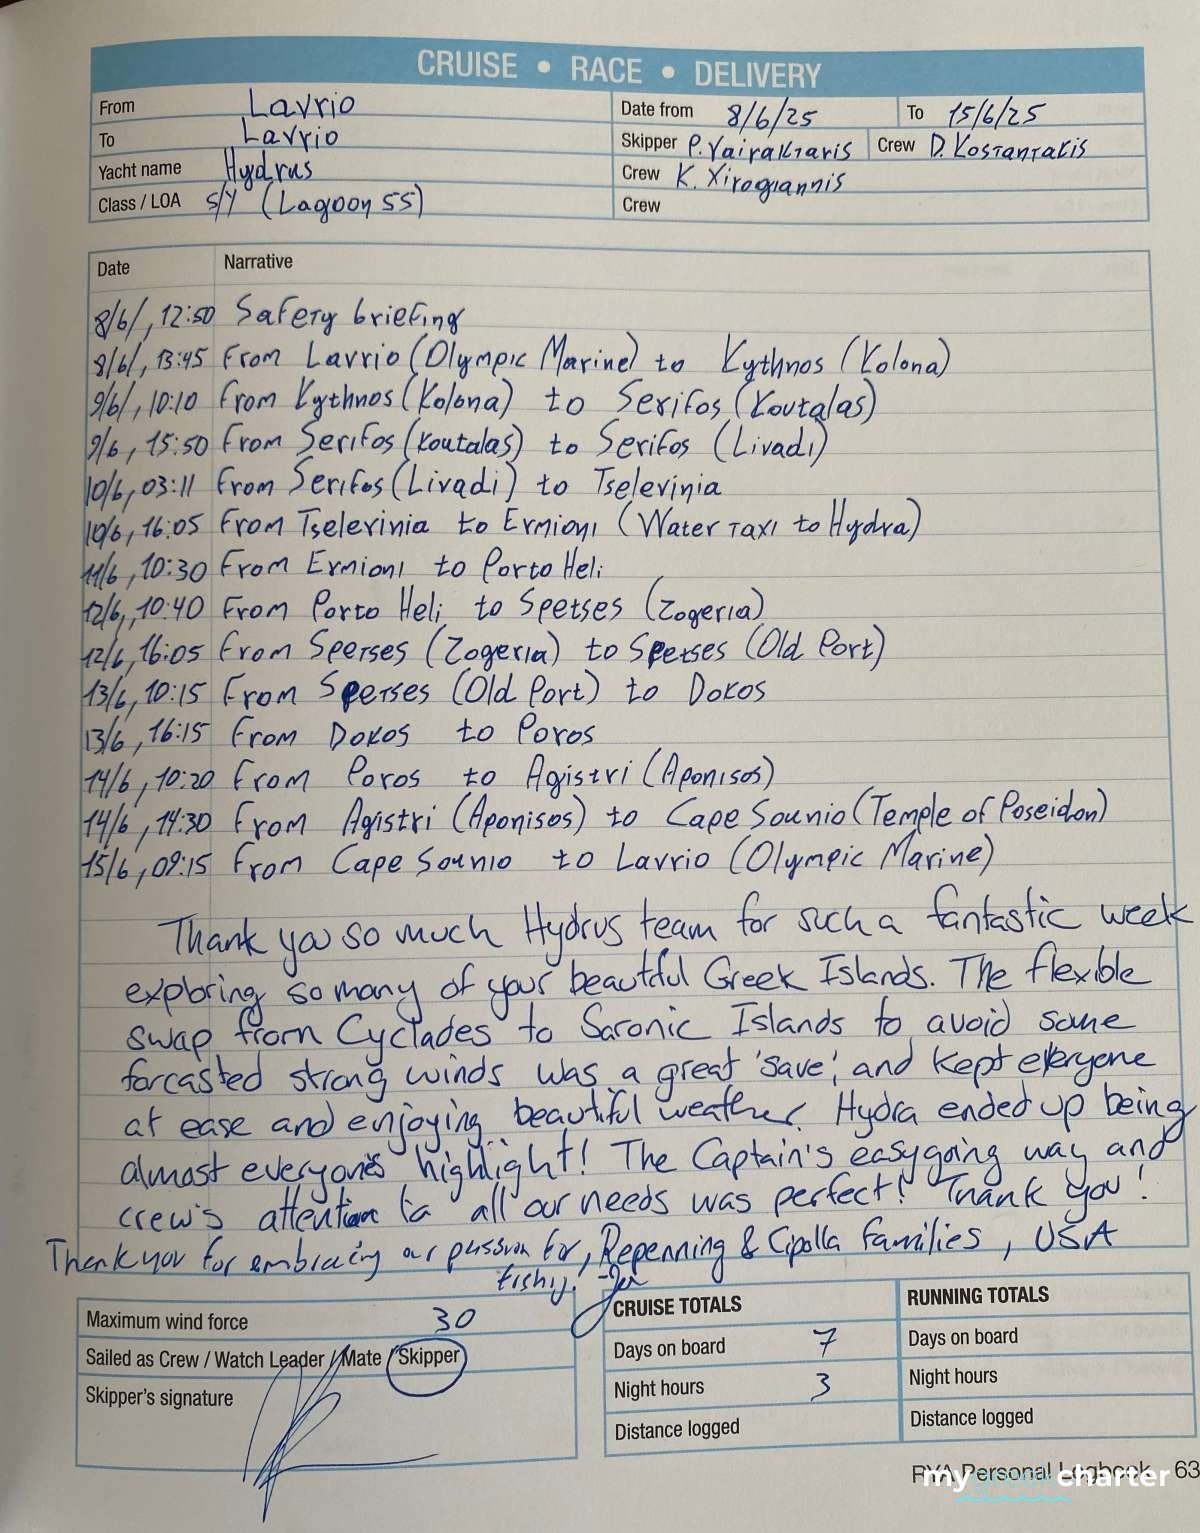 CRUISE • RACE • DELIVERY
From Lavrio Date from 8/6/25 To 15/6/25
To Lavrio Skipper P. Vairaktaris Crew D. Kostantakis
Yacht name Hydrus Crew K. Xirogiannis
Class / LOA S/Y (Lagoon 55) Crew
Date Narrative
8/6/, 12:50 Safety briefing
8/6/, 13:45 From Lavrio (Olympic Marine) to Kythnos (Kolona)
9/6/, 10:10 From Kythnos (Kolona) to Serifos (Koutalas)
9/6, 15:50 From Serifos (Koutalas) to Serifos (Livadi)
10/6, 03:11 From Serifos (Livadi) to Tselevinia
10/6, 16:05 From Tselevinia to Ermioni (Water taxi to Hydra)
11/6, 10:30 From Ermioni to Porto Heli
12/6, 10:40 From Porto Heli to Spetses (Zogeria)
12/6, 16:05 From Spetses (Zogeria) to Spetses (Old Port)
13/6, 10:15 From Spetses (Old Port) to Dokos
13/6, 16:15 From Dokos to Poros
14/6, 10:20 From Poros to Agistri (Aponisos)
14/6, 14:30 From Agistri (Aponisos) to Cape Sounio (Temple of Poseidon)
15/6, 09:15 From Cape Sounio to Lavrio (Olympic Marine)
Thank you so much Hydrus team for such a fantastic week
exploring so many of your beautiful Greek Islands. The flexible
swap from Cyclades to Saronic Islands to avoid some
forcasted strong winds was a great 'save', and kept everyone
at ease and enjoying beautiful weather. Hydra ended up being
almost everyone's highlight! The Captain's easygoing way and
crew's attention to all our needs was perfect! Thank you!
Thank you for embracing our passion for, Repenning & Cipolla families, USA
fishing! -Jen
Maximum wind force 30
Sailed as Crew / Watch Leader / Mate / Skipper
Skipper's signature
CRUISE TOTALS
Days on board 7
Night hours 3
Distance logged
RUNNING TOTALS
Days on board
Night hours
Distance logged
RYA Personal Logbook 63
mygreekcharter